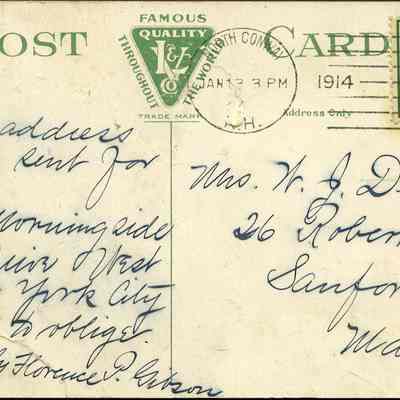 POST CARD
FAMOUS
QUALITY
L&V
CO
THROUGHOUT THE WORLD
TRADE MARK
NORTH CONWAY
JAN 13 3 PM
N.H.
1914
Address Only
address
sent for
Morningside
Drive West
York City
to oblige.
Florence P. Gibson
Mrs. W. J. D
26 Rober
Sanfor
Ma